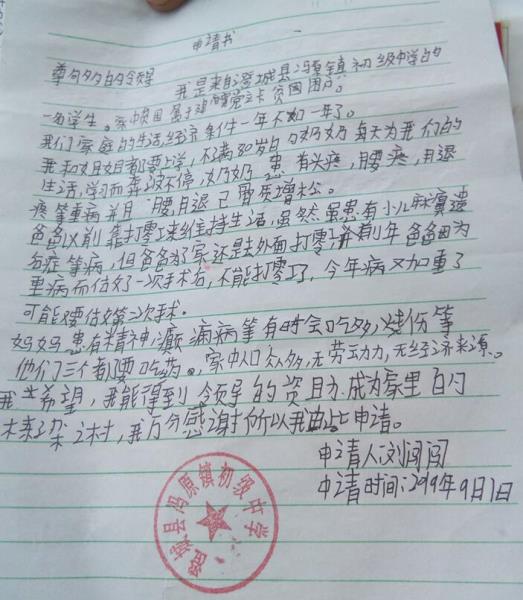 申请书
尊敬的领导
我是来自澄城县冯原镇初级中学的
一名学生。家中贫困属于建档立卡贫困户。
我们家庭的生活经济条件一年不如一年了。
我和姐姐都要上学,不满80岁的奶奶每天为我们的
生活,学习而奔波不停,奶奶患有头疼,腰疼,月退
疼等重病并且腰月退已骨质增松。
爸爸以前靠打零工来维持生活,虽然虽患有小儿麻痹遗
症等病,但爸爸为了家还是去外面打零工,年爸爸因为
重病而估好了一次手术后,不能打零工了,今年病又加重了
可能要估第二次手术。
妈妈患有精神癫痫病等有时会吃多,烧伤等
他们三个都要吃药。家中人口众多,无劳动力,无经济来源。
我希望,我能得到领导的资助,成为家里的
未来之梁之材,我万分感谢所以我由此申请。
申请人:刘闯闯
申请时间:2019年9月1日
澄城县冯原镇初级中学